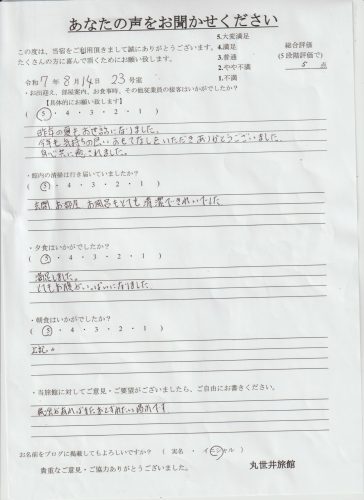 あなたの声をお聞かせください
この度は、当宿をご利用頂きまして誠にありがとうございます。
たくさんの方に喜んで頂くためにお願い致します。
5.大変満足
4.満足
3.普通
2.やや不満
1.不満
総合評価
(5段階評価で)
5 点
令和7年8月14日 23号室
・お出迎え、部屋案内、お食事時、その他従業員の接客はいかがでしたか?
【具体的にお願い致します】
(⑤・4・3・2・1)
昨年の夏もお世話になりました。
今年も気持ちの良いおもてなしをいただきありがとうございました。
心身共に癒されました。
・館内の清掃は行き届いていましたか?
(⑤・4・3・2・1)
玄関 お部屋 お風呂もとても清潔できれいでした
・夕食はいかがでしたか?
(⑤・4・3・2・1)
満足しました。
とてもお腹がいっぱいになりました
・朝食はいかがでしたか?
(⑤・4・3・2・1)
・当旅館に対してご意見・ご要望がございましたら、ご自由にお書きください。
機会があればまたおとずれたい場所です
お名前をブログに掲載してもよろしいですか?(実名・イニシャル)
貴重なご意見・ご協力ありがとうございました。
丸世井旅館